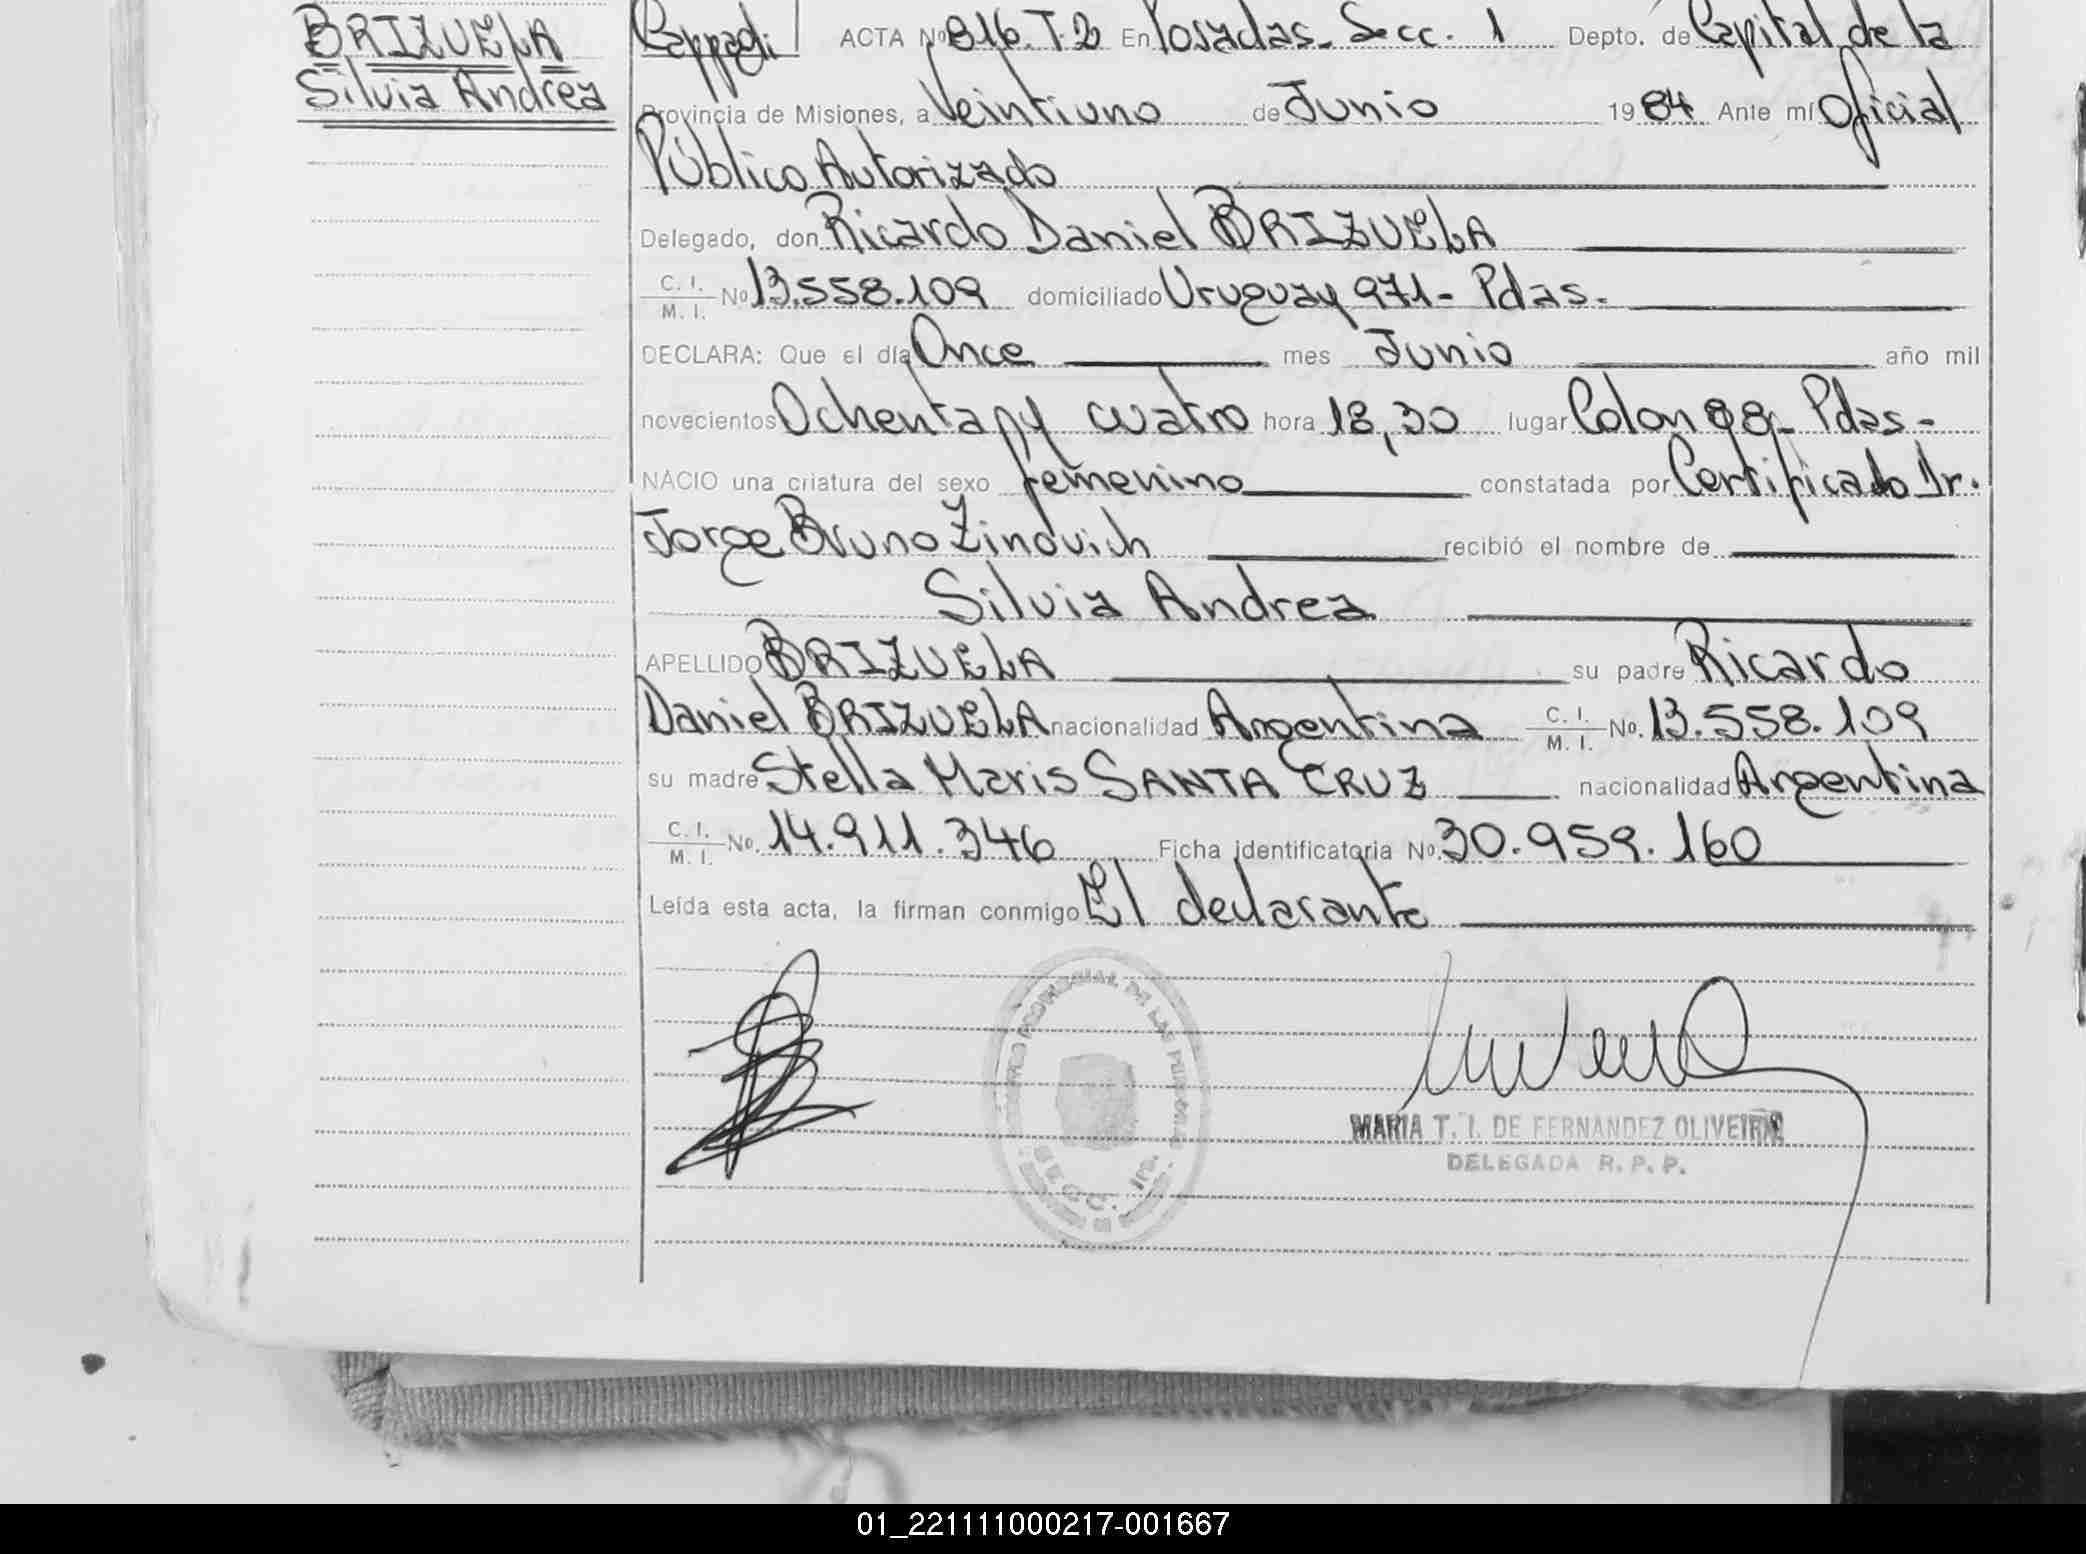 BRIZUELA
Silvia Andrea
ACTA Nº 816. T. 2 En Posadas. Secc. 1 Depto. de Capital de la
Provincia de Misiones, a Veintiuno de Junio 1984 Ante mí Oficial
Público Autorizado
Delegado, don Ricardo Daniel BRIZUELA
C. I. / M. I. Nº 13.558.109 domiciliado Uruguay 971 - Pdas.
DECLARA: Que el día Once mes Junio año mil
novecientos Ochenta y cuatro hora 18,30 lugar Colon 98 - Pdas -
NACIO una criatura del sexo femenino constatada por Certificado Dr.
Jorge Bruno Zinovich recibió el nombre de
Silvia Andrea
APELLIDO BRIZUELA su padre Ricardo
Daniel BRIZUELA nacionalidad Argentina C. I. / M. I. No. 13.558.109
su madre Stella Maris SANTA CRUZ nacionalidad Argentina
C. I. / M. I. No. 14.911.346 Ficha identificatoria Nº 30.959.160
Leída esta acta, la firman conmigo El declarante
MARIA T. I. DE FERNANDEZ OLIVEIRA
DELEGADA R. P. P.
01_221111000217-001667